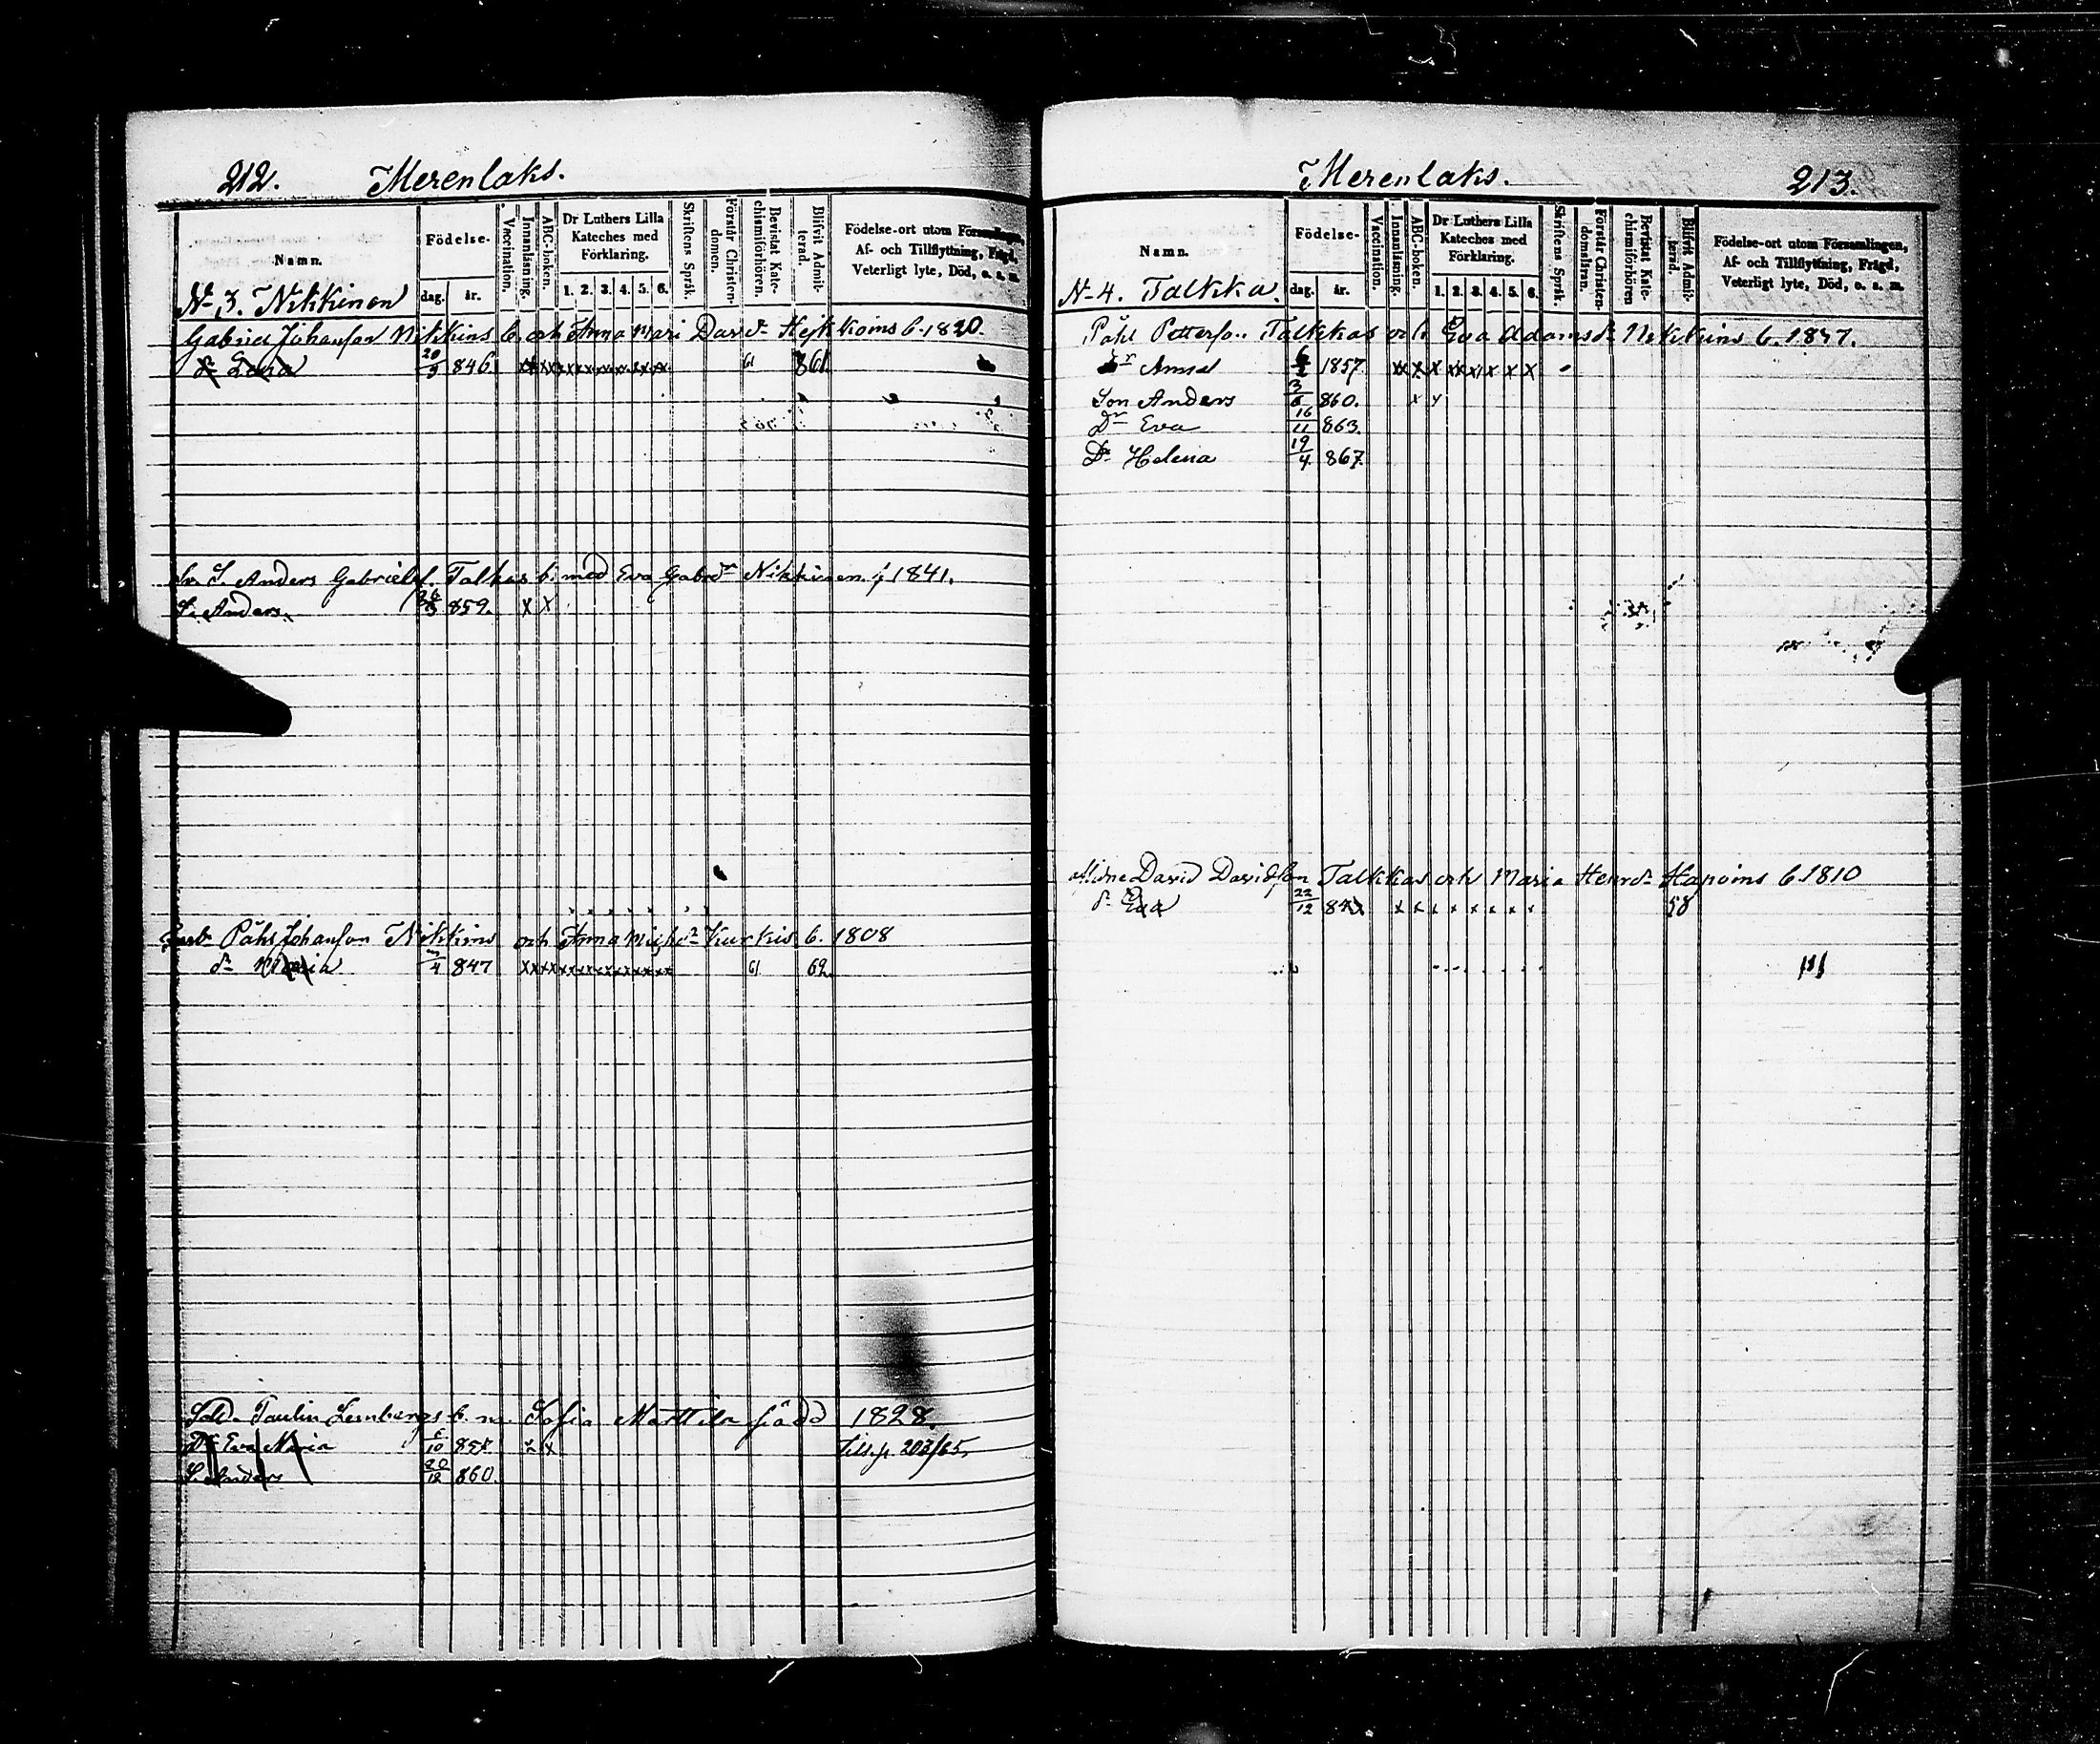 212. Merenlaks.
Namn.
Födelse-
dag. år.
Vaccination.
Innanläsning.
ABC-boken.
Dr Luthers Lilla
Kateches med
Förklaring.
1. 2. 3. 4. 5. 6.
Skriftens Språk.
Förstår Christen-
domen.
Bevistat Kate-
chismiförhören.
Blifvit Admit-
terad.
Födelse-ort utom Församlingen,
Af- och Tillflyttning, Frägd,
Veterligt lyte, Död, o. s. m.
N 3. Nikkinen
Gabriel Johansson Nikkins b. och Anna Mari Dav dr Hejkkoins b. 1820.
dr Lena 20/9 846 xx xx xx xx xx xx xx xx 61 861
S. Anders Gabrielsf. Talkas b. med Eva Gabr dr Nikkinen f 1841.
S. Anders 859. x x
Påhl Johanson Nikkins och Anna Mich dr Kurkis b. 1808
dr Maria /4 847 xx xx xx xx xx xx xx xx 61 62
Sold. Paulin Lembergs b. m. Sofia Marttila född 1828.
Dr Eva Maria /10 85 x x till p. 203/65,
S. Anders 20/12 860.
Merenlaks. 213.
Namn.
Födelse-
dag. år.
Vaccination.
Innanläsning.
ABC-boken.
Dr Luthers Lilla
Kateches med
Förklaring.
1. 2. 3. 4. 5. 6.
Skriftens Språk.
Förstår Christen-
domsläran.
Bevistat Kate-
chismiförhören
Blifvit Admit-
terad.
Födelse-ort utom Församlingen,
Af- och Tillflyttning, Frägd,
Veterligt lyte, Död, o. s. m.
N 4. Talkka.
Påhl Petterso.. Talkkas och Eva Adams dr Nikkins b.
dr Anna 1857 xx x x xx x x x x
Son Anders 3/ 860. x x
Dr Eva 16/11 863.
Dr Helena 19/4 867.
David Davidson Talkkas och Maria Henr dr Hapoins b. 1810
dr Eva 22/12 84 x x x x x x x x 58